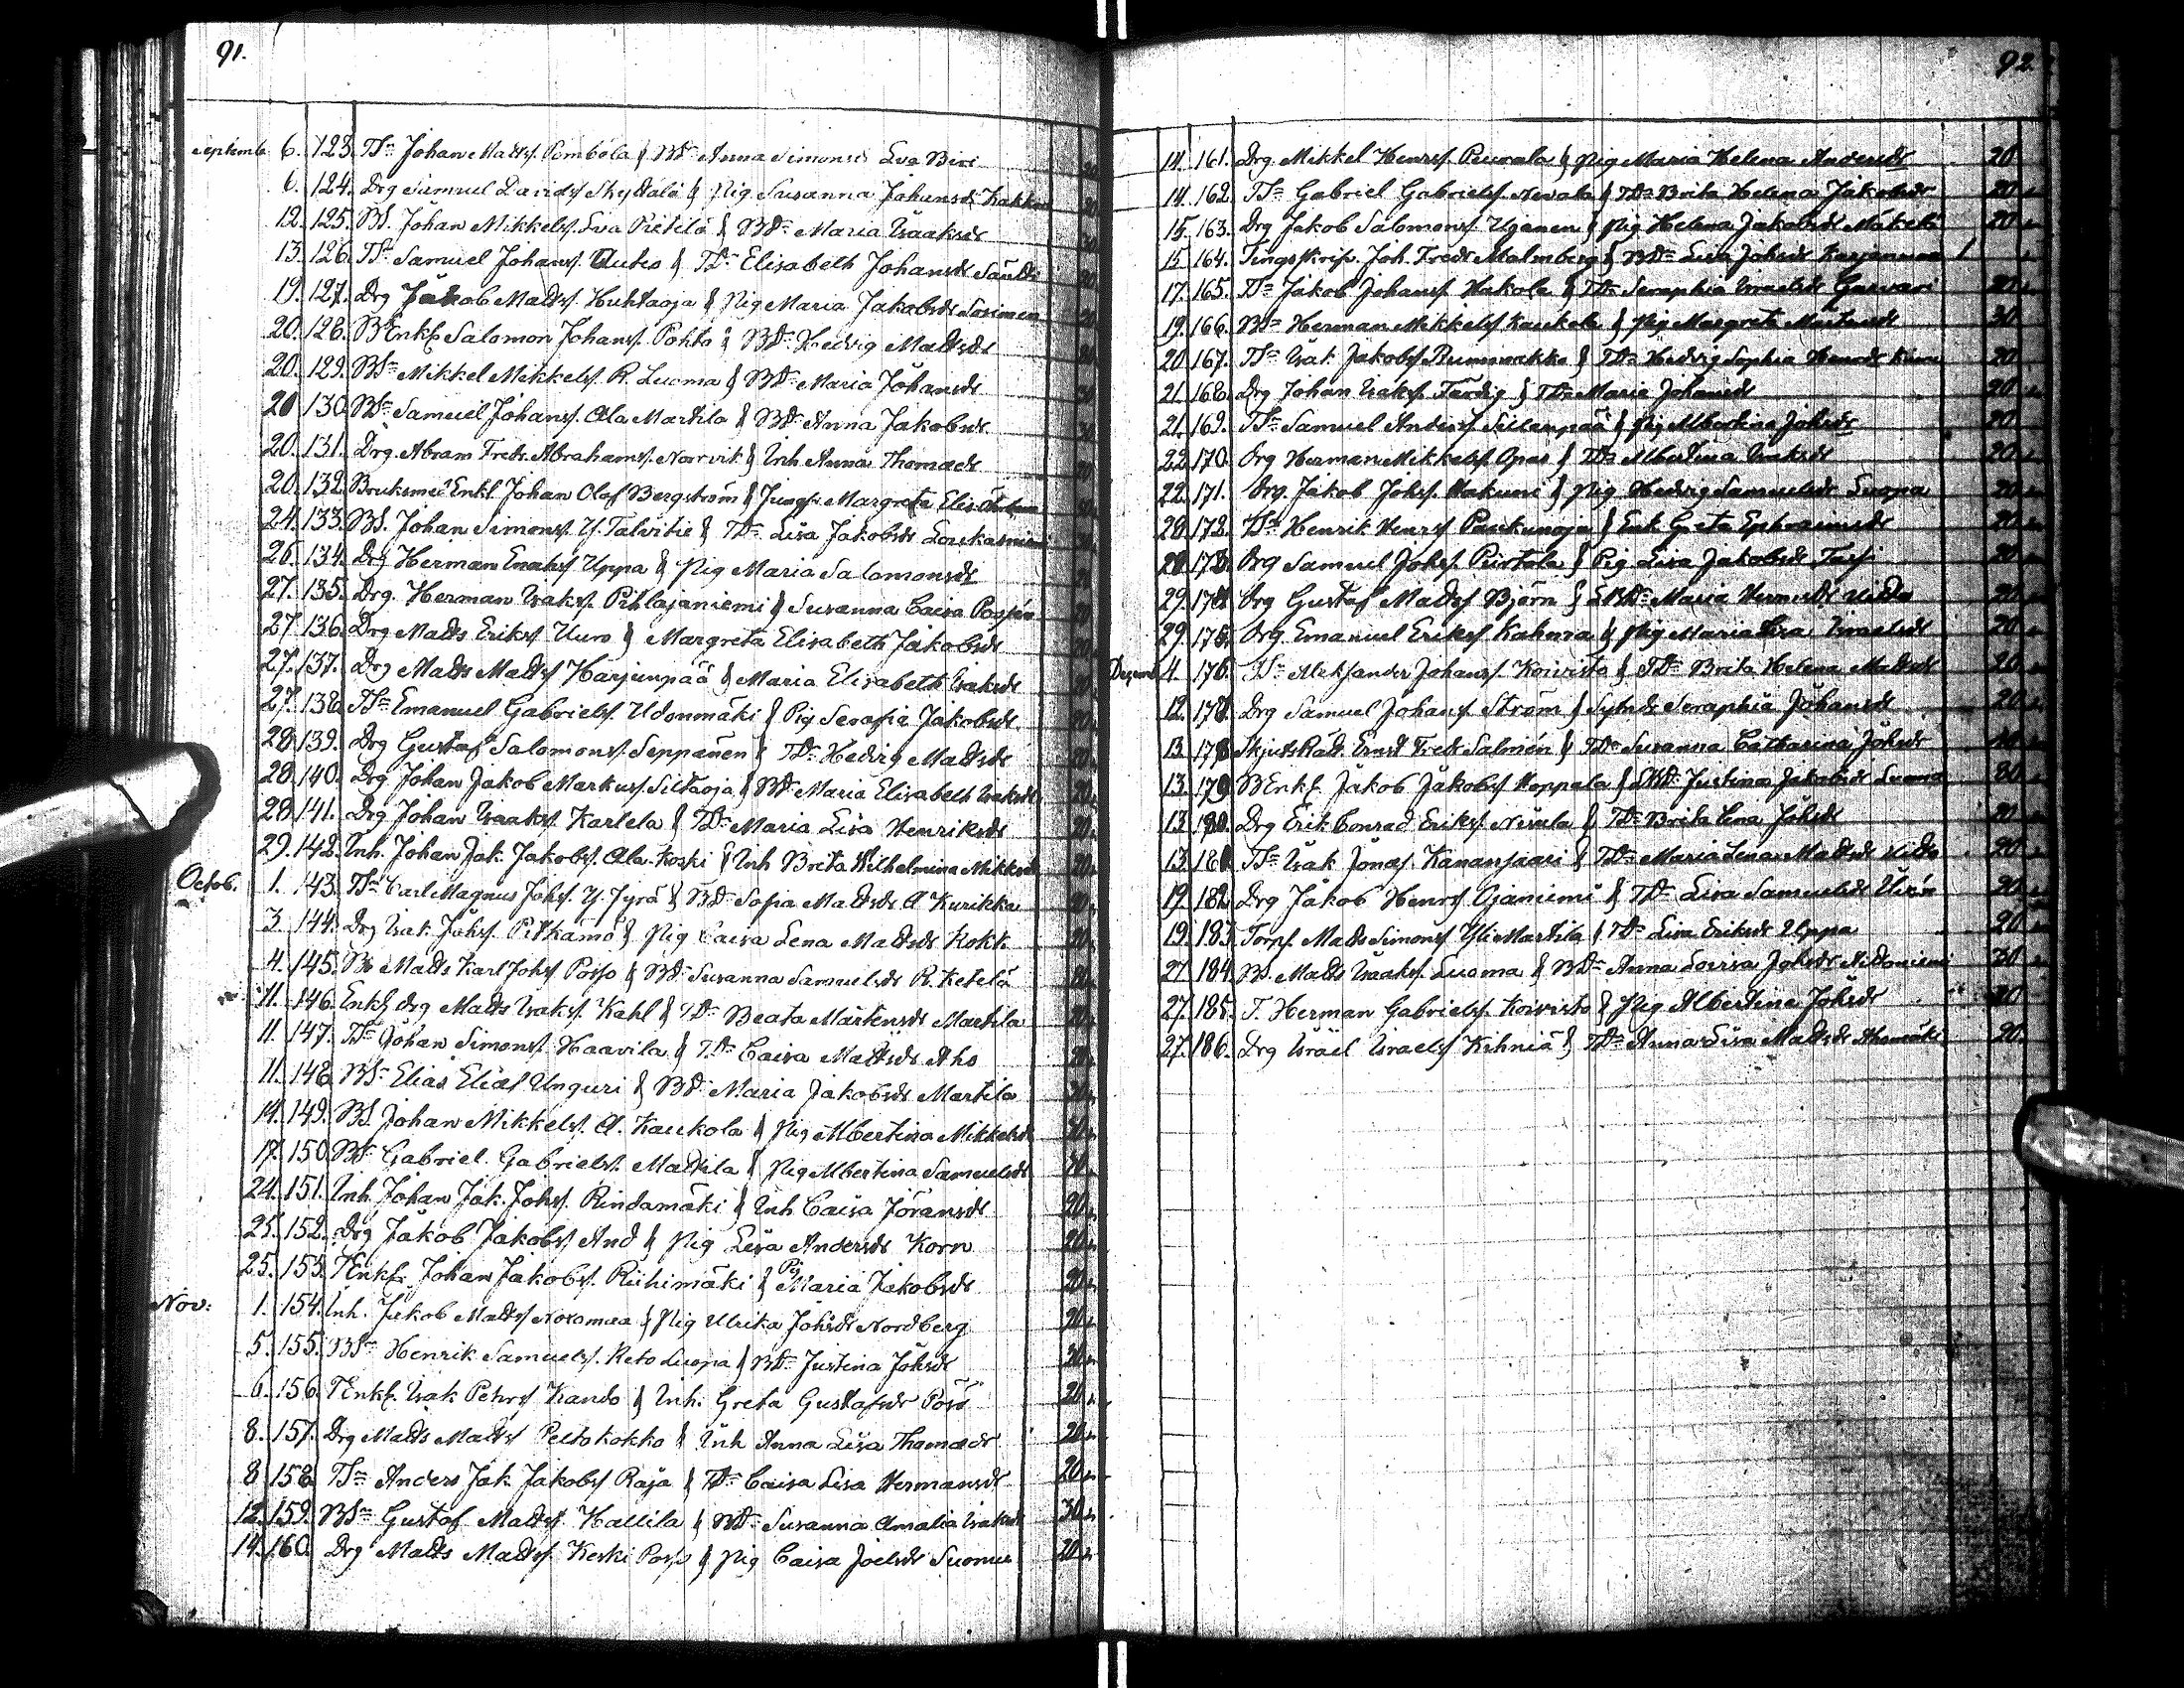 91.
Septemb. 6. 123. TSn Johan Matts. Pombola & BDr Anna Simonsdr Eva Biri
6. 124. Drg Samuel Davids. Skyttälä & Pig. Susanna Johansdr Kakko
12. 125. BS. Johan Mikkels. Eva Pietilä & BDr Maria Isaaksdr
13. 126. TSn Samuel Johans. Autio & TDr Elisabeth Johansdr
19. 127. Drg Jakob Matts. Huhtaoja & Pig Maria Jakobsdr Sorinen
20. 128. BEnkl. Salomon Johans. Pohto & BDr Hedvig Mattsdr
20. 129. BSn Mikkel Mikkels. R. Luoma & BDr Maria Johansdr
20 130. BSn Samuel Johans. Ala Martila & BDr Anna Jakobsdr
20. 131. Drg. Abram Fredr. Abrahams. Norrvik & Inh. Anna Thomasdr
20. 132. Bruksmed Enkl Johan Olof Bergström & Jungfr Margreta Elis.
24. 133. BS. Johan Simons. Y. Talvitie & TDr Lisa Jakobsdr Loukasmäki
26. 134. Drg Herman Enoks. Uppa & Pig Maria Salomonsdr
27. 135. Drg. Herman Isaks. Pihlajaniemi & Susanna Caisa
27 136. Drg Matts Eriks. Uuro & Margreta Elisabeth Jakobsdr
27. 137. Drg Matts Matts. Harjunpää & Maria Elisabeth Isaksdr
27. 138. TSn Emanuel Gabriels. Udonmäki & Pig Serafia Jakobsdr
28 139. Drg Gustaf Salomons. Seppänen & TDr Hedvig Mattsdr
28 140. Drg Johan Jakob Markus. Siltaoja & BDr Maria Elisabeth Isaksdr 20
28 141. Drg Johan Isaaks. Kartela & TDr Maria Lisa Henriksdr 20
29. 142. Inh. Johan Jak. Jakobs. Ala-Koski & Inh Breta Wilhelmina Mikkelsdr 20
Octob. 1. 143. TSn Carl Magnus Johs. Y. Jyrä & BDr Sofia Mattsdr A Kurikka 20
3. 144. Drg Isak Johs. Pitkämö & Pig Caisa Lena Mattsdr Kokk 20
4. 145. Bo Matts Karl Johs. Poiso & BDr Susanna Samuelsdr R. Ketelä
11. 146. Enkl drg Matts Isaks. Kahl & TDr Beata Mårtensdr Martila 20
11. 147. TSn Johan Simons. Haavila & TDr Caisa Mattsdr Aho 20
11. 148. BSn Elias Elias. Unguri & BDr Maria Jakobsdr Martila
14. 149. BS. Johan Mikkels. A. Kaukola & Pig Albertina Mikkelsdr
17. 150. BSn Gabriel Gabriels. Mattila & Pig Albertina Samuelsdr
24. 151. Inh. Johan Jak. Johs. Rindamäki & Inh Caisa Jöransdr 20
25. 152. Drg Jakob Jakobs. And & Pig Lisa Andersdr Korn 20
25. 153. TEnkl. Johan Jakobs. Riihimäki & Pig Maria Jakobsdr 20
Nov: 1. 154. Inh. Jakob Matts. Noromaa & Pig Ulrika Johsdr Nordberg 20
5. 155. BSn Henrik Samuels. Reto Luopa & BDr Justina Johsdr 30
6. 156. TEnkl. Isak Pehrs. Kando & Inh. Greta Gustafsdr Pörö 20
8. 157. Drg Matts Matts. Peltokokko & Inh Anna Lisa Thomasdr 20
8 158. TSn Anders Jak Jakobs. Raja & TDr Caisa Lisa Hermansdr 20
12. 159. BSn Gustaf Matts. Hallila & BDr Susanna Amalia Isaksdr 30
14. 160. Drg Matts Matts. Keski Poiso & Pig Caisa Joelsdr Suomu 20
92.
14. 161. Drg. Mikkel Henrs. Peurala & Pig Maria Helena Andersdr 20
14. 162. TSn Gabriel Gabriels. Nevala & TDr Brita Helena Jakobsdr 20
15. 163. Drg Jakob Salomons. Ujanen & Pig Helena Jakobsdr Mäkelä 20
15. 164. Tingsskrifv. Joh. Fredr Malmberg & BDr Lisa Johsdr Karjanmaa
17. 165. TSn Jakob Johans. Hakola & TDr Seraphia Israelsdr
19. 166. BSn Herman Mikkels. Kaukola & Pig Margreta Mårtensdr 30
20 167. TSn Isak Jakobs. Rummukka & TDr Hedvig Sophia Henrsdr 20
21. 168. Drg Johan Isaks. Färdig & TDr Maria Johansdr 20
21. 169. TSn Samuel Anders. Sillanpää & Pig Albertina Johsdr 20
22. 170. Drg Herman Mikkels. Opas & TDr Albertina Isaksdr 20
22. 171. Drg. Jakob Johs. Hakuni & Pig Hedvig Samuelsdr Luopa 20
28 172. TSn Henrik Henrs. Paukunoja & Enk. Greta Ephraimsdr 20
28 173. Drg Samuel Johs. Piirtola & Pig Lisa Jakobsdr 20
29. 174. Drg Gustaf Matts. Björn & BDr Maria Hermsdr 20
29. 175. Drg. Emanuel Eriks. Kahma & Pig Maria Lisa Israelsdr 20
Decemb 4. 176. TSn Alexander Johans. Koivisto & TDr Brita Helena Mattsdr 20
12. 177. Drg Samuel Johans. Ström & Sytndr Seraphia Johansdr 20
13. 178 Skjutsrätt. Ernst Fredr Salmén & TDr Susanna Catharina Johsdr
13. 179 BEnkl. Jakob Jakobs. Hoppala & BDr Justina Jakobsdr Luoma 30
13 180. Drg Erik Conrad Eriks. Nisula & TDr Brita Lena Johsdr 20
13. 181 TSn Isak Jonas. Kananjaari & TDr Maria Lena Mattsdr 20
19. 182. Drg Jakob Henrs. Ojaniemi & TDr Lisa Samuelsdr 20
19. 183. Torp. Matts Simons. Yli Martila & TDr Lisa Eriksdr Uppa 20
27 184. BS. Matts Isaaks. Luoma & BDr Anna Lovisa Johsdr Nidoniemi 30
27. 185. T. Herman Gabriels. Koivisto & Pig Albertina Johsdr 20
27. 186. Drg Israel Israels. Kihniä & TDr Anna Lisa Mattsdr 20.